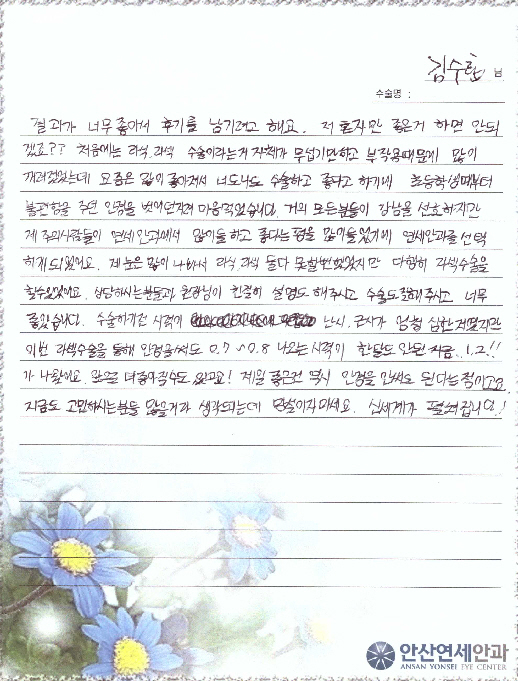 김수환 님
수술명 :
결과가 너무 좋아서 후기를 남기려고 해요. 저 혼자만 좋은거 하면 안되
겠죠?? 처음에는 라식, 라섹 수술이라는거 자체가 무섭기만하고 부작용때문에 많이
꺼려졌었는데 요즘은 많이 좋아져서 너도나도 수술하고 좋다고 하기에 초등학생때부터
불편함을 주던 안경을 벗어던지려 마음먹었습니다. 거의 모든분들이 강남을 선호하지만
제 주위사람들이 연세안과에서 많이들하고 좋다는 평을 많이들었기에 연세안과를 선택
하게 되었어요. 제 눈은 많이 나빠서 라식, 라섹 둘다 못할뻔했었지만 다행히 라섹수술을
할수있었어요. 상담하시는분들과 원장님이 친절히 설명도 해주시고 수술도 잘해주시고 너무
좋았습니다. 수술하기전 시력이 난시, 근시가 엄청 심한저였지만
이번 라섹수술을 통해 안경을써도 0.7~0.8 나오는 시력이 한달도 안된 지금.. 1.2!!
가 나왔어요. 앞으로 더좋아질수도 있고요! 제일 좋은건 역시 안경을 안써도 된다는 점이고요
지금도 고민하시는분들 많을거라 생각되는데 망설이지마세요. 신세계가 펼쳐집니다!
안산연세안과
ANSAN YONSEI EYE CENTER